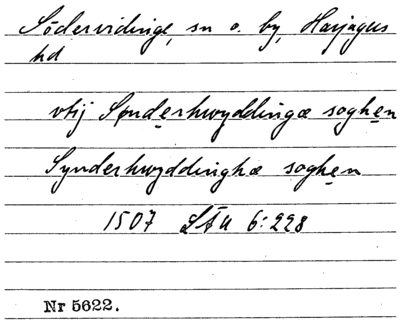 Södervidinge, sn o. by, Harjagers
hd
vtij Sønderhwyddingæ soghen
Synderhwyddinghæ soghen
1507 LÅU 6:228
Nr 5622.